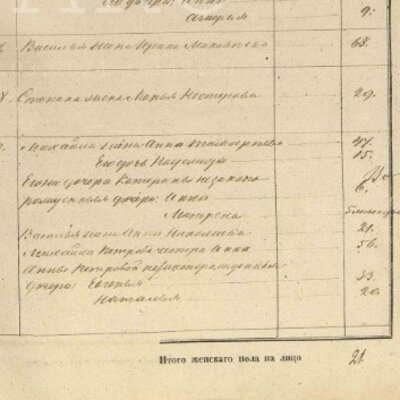 Его дочери: Анна
9.
Василья жена Ирина Маковѣева
68.
Степана жена Марья Нестерова
29.
Михайла жена Анна
47.
Его дочь
15.
Екатерины незаконно
рожденныя дочери: Анна
6.
Матрена
5
Василья жена Анна Николаева
21.
Михайла Петрова сестра Анна
56.
Анны Петровой незаконорожденныя
дочери: Евгенья
33.
Наталья
20.
Итого женскаго пола на лицо
21.